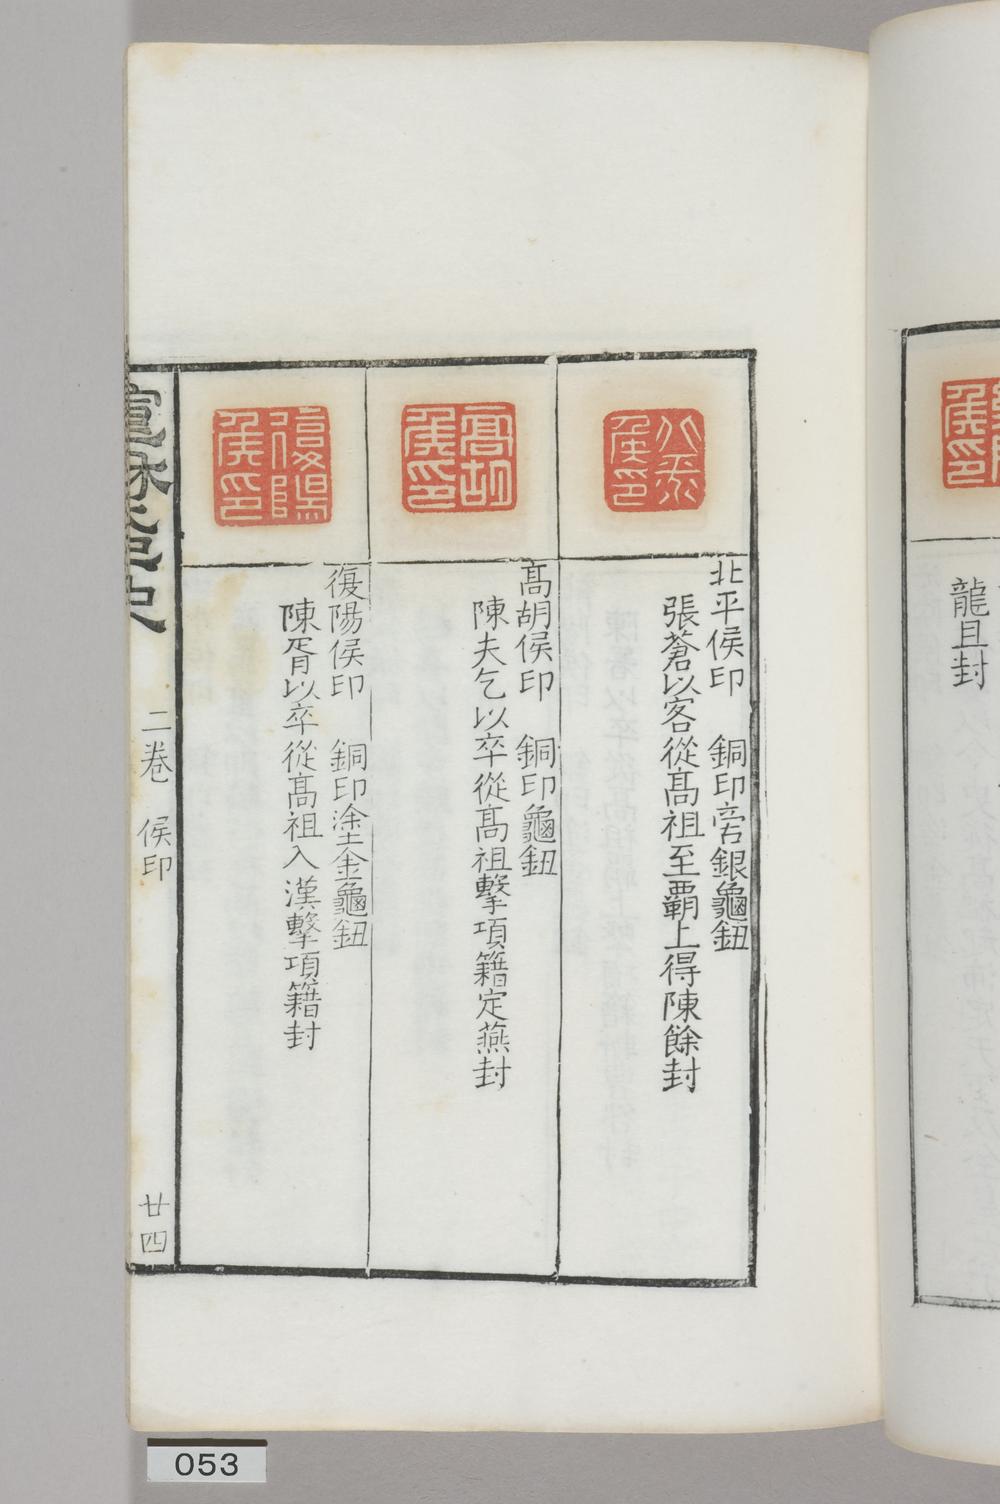 龍且封
北平侯印
北平侯印 銅印旁銀龜鈕
張蒼以客從高祖至霸上得陳餘封
高胡侯印
高胡侯印 銅印龜鈕
陳夫乞以卒從高祖擊項籍定燕封
復陽侯印
復陽侯印 銅印塗金龜鈕
陳胥以卒從高祖入漢擊項籍封
二卷 侯印
廿四
053